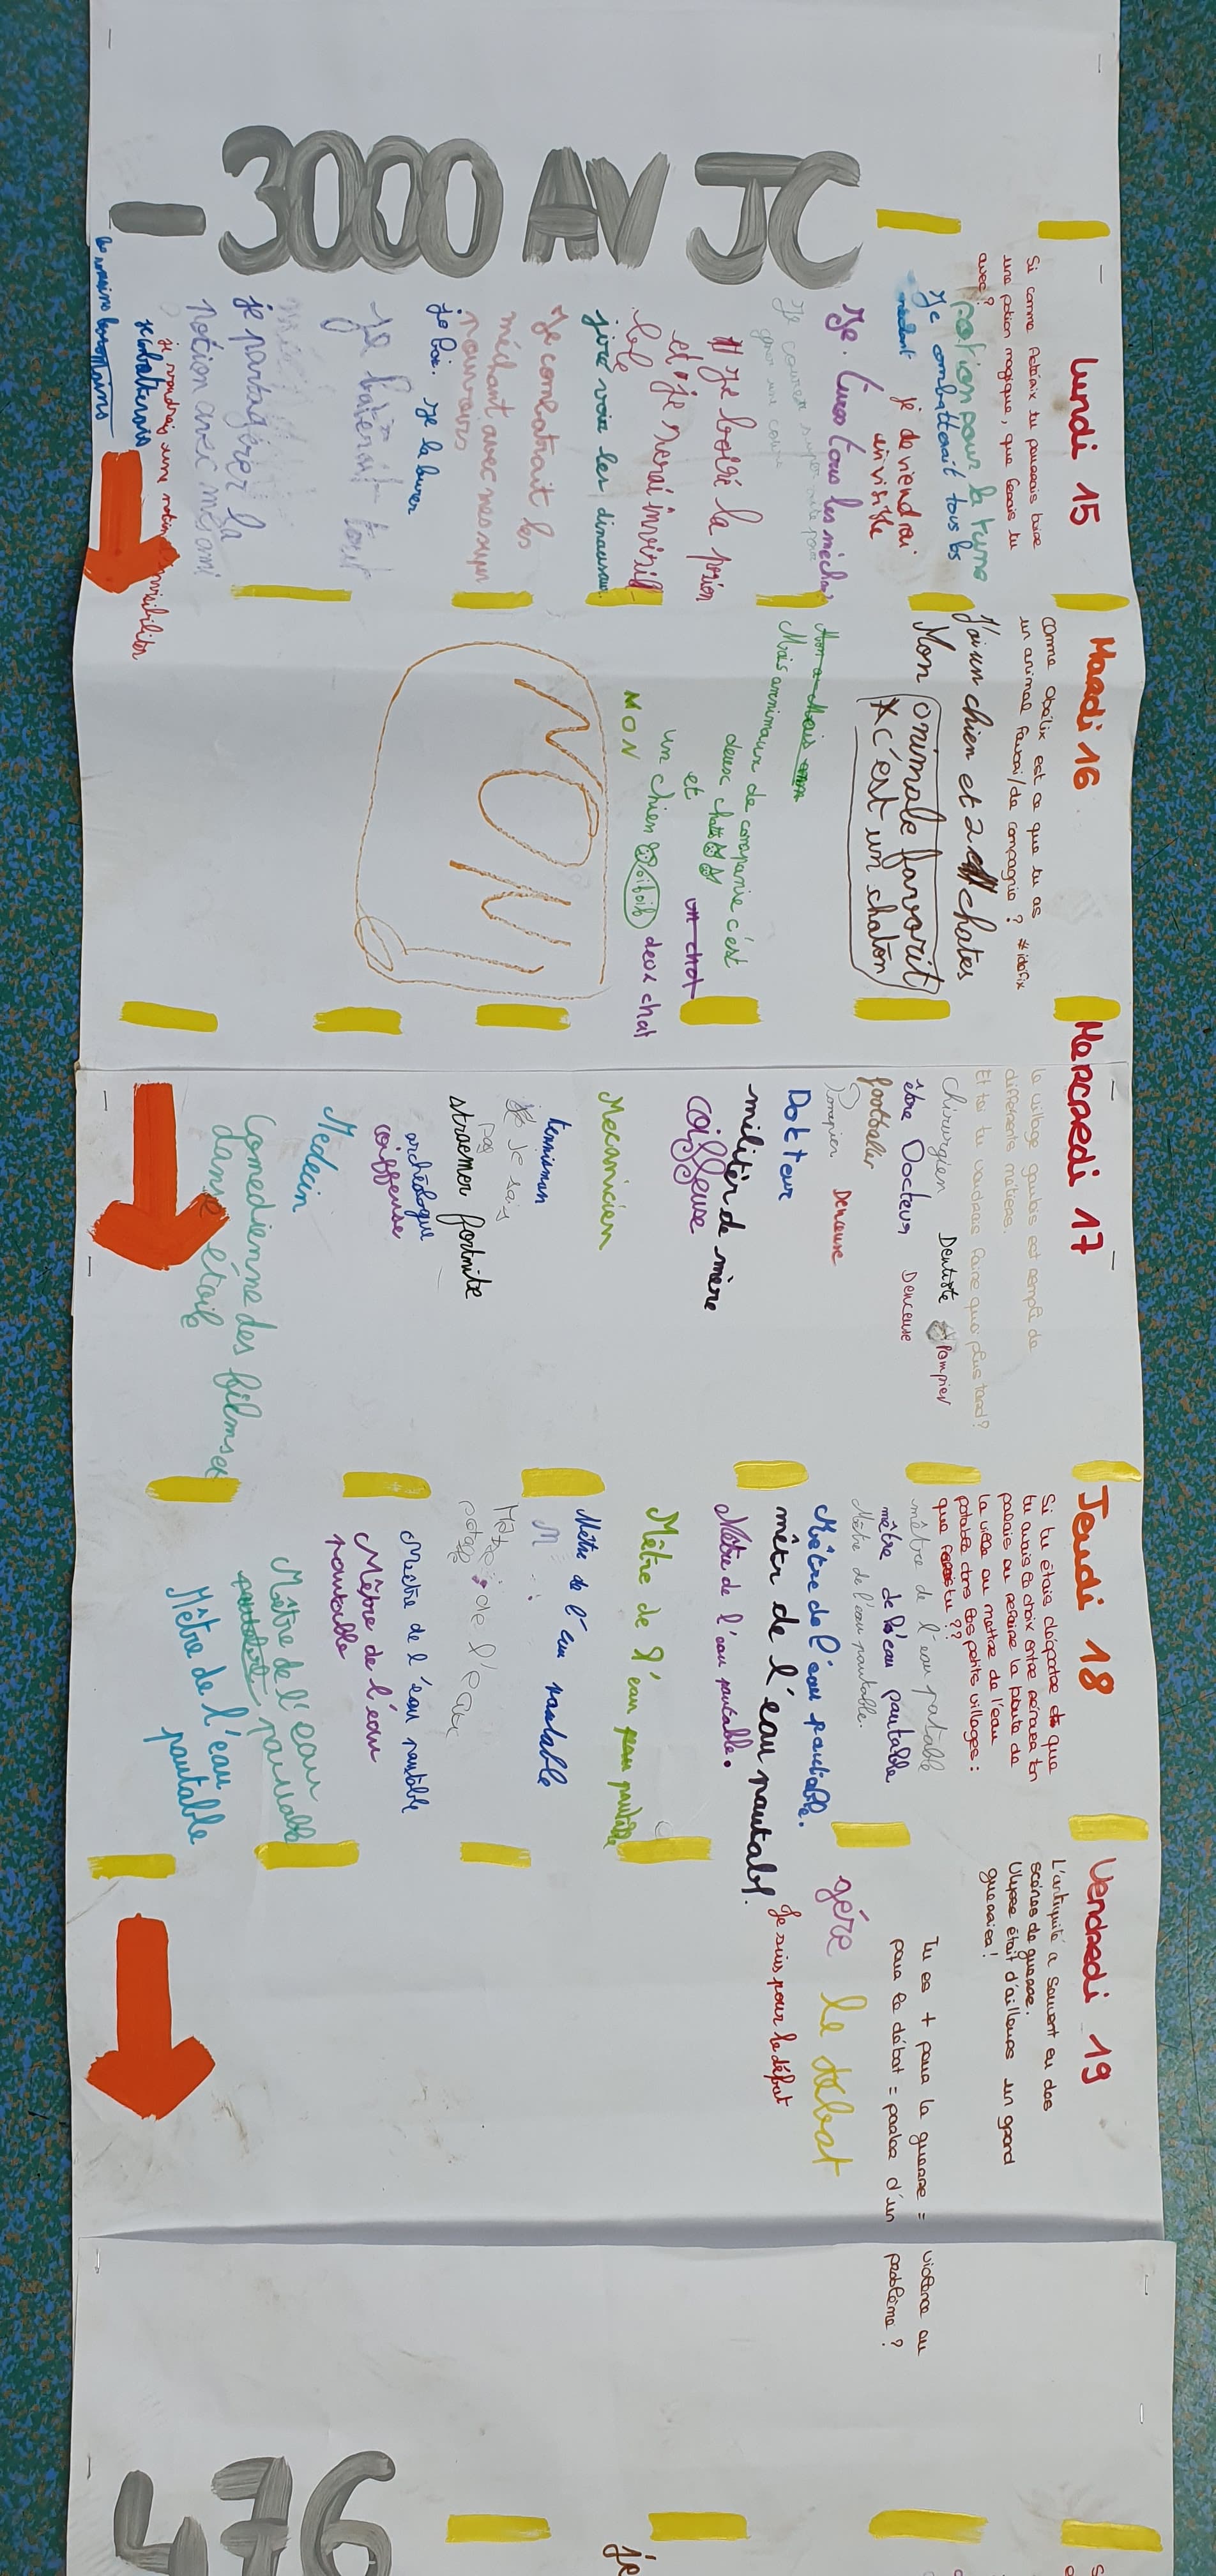 -3000 AV JC
Lundi 15
Si comme Astérix tu pouvais boire
une potion magique, que ferais tu
avec ?
potion pour la tune
Je combatterait tous les
méchant
je deviendrai
invisible
Je. tuer tous les mécha
Je courer super vite pour
gner une course
Je boiré la potion
et je serai invisible
jiré voir les dinausaur
Je combatrait les
méchant avec mes super
pouvoirs
je boi. je la burer
Je tout
je partagérer la
potion avec mes ami
je voudrais une potion d'invisibiliter
je combatterais
les romains
Mardi 16
comme Obélix est ce que tu as
un animal favori/de compagnie ? #idéfix
J'ai un chien et 2 chates
Mon animale favorit
c'est un chaton
Mais annimaux de companie c'est
deux chats
et un chat
un chien deux chat
NON
NON
Mercredi 17
le village gaulois est rempli de
différents métiers.
Et toi tu voudrais faire quoi plus tard ?
Chirurgien Dentiste Pompier
être Docteur Denceuse
footballer
Pompier Denceuse
Dokteur
militèr de mère
coiffeuse
Mecanicien
tennisman
Je sais
pas
straemer fortnite
archéologue
coiffeuse
Médecin
Comedienne des films et
danse étoile
Jeudi 18
Si tu étais d'apatre et que
tu avais le choix entre rénover ton
palais ou refaire la route de
la ville ou mettre de l'eau
potable dans les petits villages :
que ferais tu ??
mètre de l'eau potable
mêtre de l'eau pautable
Mêtre de l'eau pautable.
Mêtre de l'eau pautable.
mêtr de l'eau pautabl.
Mètre de l'eau pautable.
Mêtre de l'eau pautable
Mêtre de l'eau pautable
Mètre de l'eau
potable
Mectre de l'éau pautable
Mêtre de l'eau
pautable
Mêtre de l'eau
pautable
Mêtre de l'eau
pautable
Vendredi 19
L'antiquité a souvent eu des
scènes de guerre.
Ulysse était d'ailleurs un grand
guerrier !
Tu es + pour la guerre = violence ou
pour le débat = parler d'un problème ?
gére le debat
Je suis pour le débat
476
je